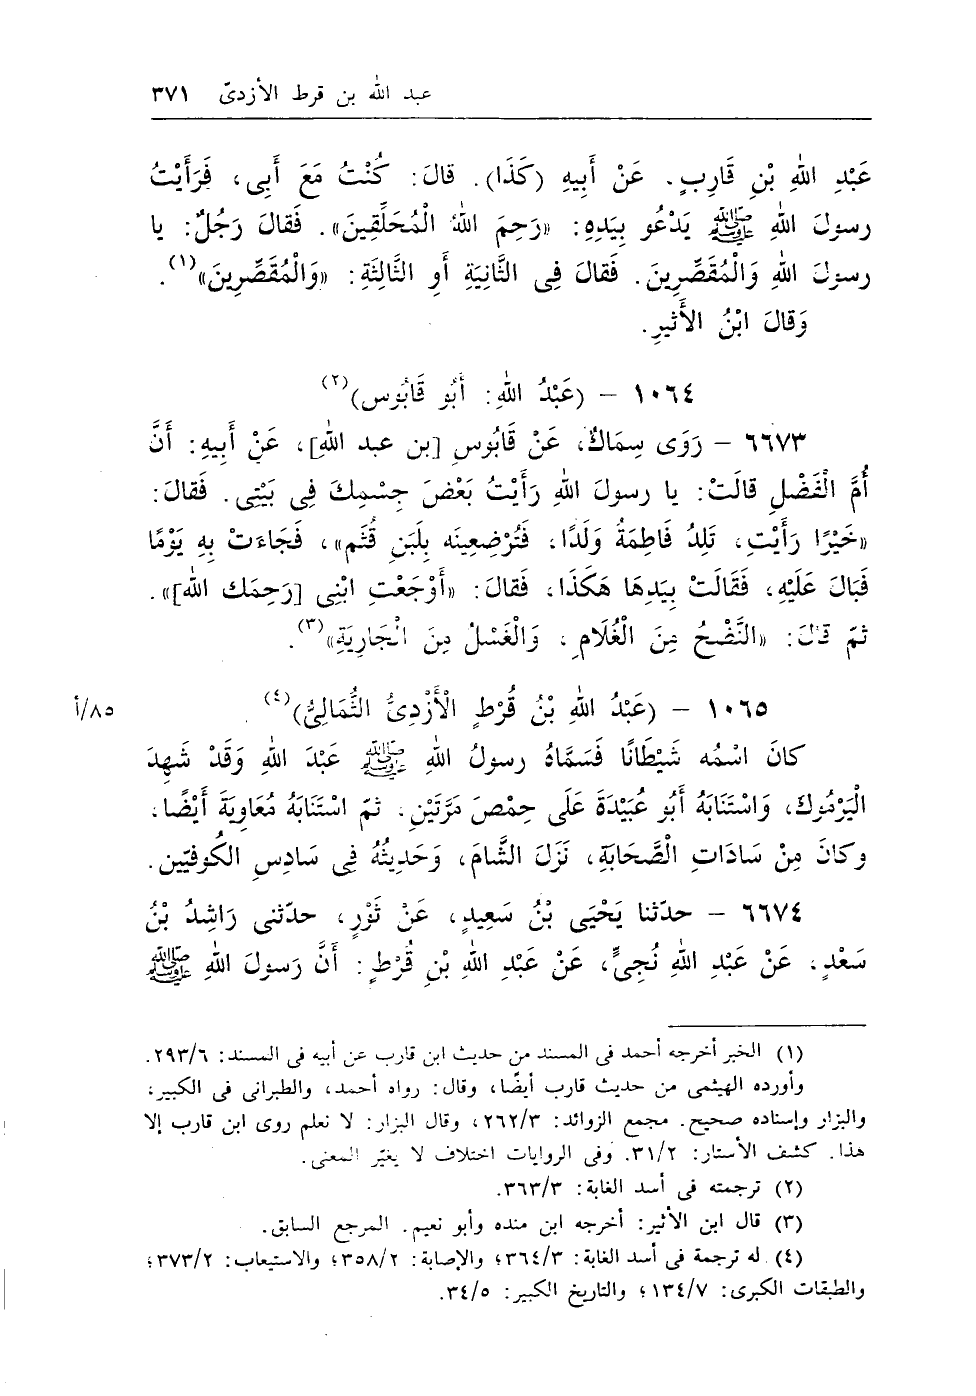 عبد الله بن قرط الأزدىّ ٣٧١
عَبْدِ اللهِ بْنِ قَارِبٍ. عَنْ أَبِيهِ (كَذَا). قالَ: كُنْتُ مَعَ أَبِى، فَرَأَيْتُ
رسولَ اللهِ ﷺ يَدْعُو بِيَدِهِ: «رَحِمَ اللهُ الْمُحَلِّقِينَ». فَقالَ رَجُلٌ: يا
رسولَ اللهِ وَالْمُقَصِّرِينَ. فَقالَ فِى الثَّانِيَةِ أَوِ الثَّالِثَةِ: «وَالْمُقَصِّرِينَ»(١).
وَقالَ ابْنُ الأَثيرِ.
١٠٦٤ - (عَبْدُ اللهِ: أَبُو قَابُوس)(٢)
٦٦٧٣ - رَوَى سِمَاكٌ، عَنْ قَابُوسِ [بن عبد الله]، عَنْ أَبِيهِ: أَنَّ
أُمَّ الْفَضْلِ قالَتْ: يا رسولَ اللهِ رَأَيْتُ بَعْضَ جِسْمِكَ فِى بَيْتِى. فَقالَ:
«خَيْرًا رَأَيْتِ، تَلِدُ فَاطِمَةُ وَلَدًا، فَتُرْضِعِينَه بِلَبَنِ قُثَم»، فَجَاءَتْ بِهِ يَوْمًا
فَبَالَ عَلَيْهِ، فَقَالَتْ بِيَدِهَا هَكَذَا، فَقالَ: «أَوْجَعْتِ ابْنِى [رَحِمَك الله]».
ثمّ قالَ: «النَّضْحُ مِنَ الْغُلَامِ، وَالْغَسْلُ مِنَ الْجَارِيَةِ»(٣).
١٠٦٥ - (عَبْدُ اللهِ بْنُ قُرْطٍ الْأَزْدِىُّ الثُّمَالِىُّ)(٤)
٨٥/أ
كانَ اسْمُه شَيْطَانًا فَسَمَّاهُ رسولُ اللهِ ﷺ عَبْدَ اللهِ وَقَدْ شَهِدَ
الْيَرْمُوكَ، وَاسْتَنَابَهُ أَبُو عُبَيْدَةَ عَلَى حِمْصَ مَرَّتَيْنِ. ثمّ اسْتَنَابَهُ مُعَاوِيَةَ أَيْضًا،
وكانَ مِنْ سَادَاتِ الصَّحَابَةِ، نَزَلَ الشَّامَ، وَحَدِيثُهُ فِى سَادِسِ الكُوفيّين.
٦٦٧٤ - حدّثنا يَحْيَى بْنُ سَعِيدٍ، عَنْ ثَوْرٍ، حدّثنى رَاشِدُ بْنُ
سَعْدٍ، عَنْ عَبْدِ اللهِ نُجِىٍّ، عَنْ عَبْدِ اللهِ بْنِ قُرْطٍ: أَنَّ رَسولَ اللهِ ﷺ
(١) الخبر أخرجه أحمد فى المسند من حديث ابن قارب عن أبيه فى المسند: ٢٩٣/٦.
وأورده الهيثمى من حديث قارب أيضًا، وقال: رواه أحمد، والطبرانى فى الكبير،
والبزار وإسناده صحيح. مجمع الزوائد: ٢٦٢/٣، وقال البزار: لا نعلم روى ابن قارب إلا
هذا. كشف الأستار: ٣١/٢. وفى الروايات اختلاف لا يغيّر المعنى.
(٢) ترجمته فى أسد الغابة: ٣٦٣/٣.
(٣) قال ابن الأثير: أخرجه ابن منده وأبو نعيم. المرجع السابق.
(٤) له ترجمة فى أسد الغابة: ٣٦٤/٣؛ والإصابة: ٣٥٨/٢؛ والاستيعاب: ٣٧٣/٢؛
والطبقات الكبرى: ١٣٤/٧؛ والتاريخ الكبير: ٣٤/٥.